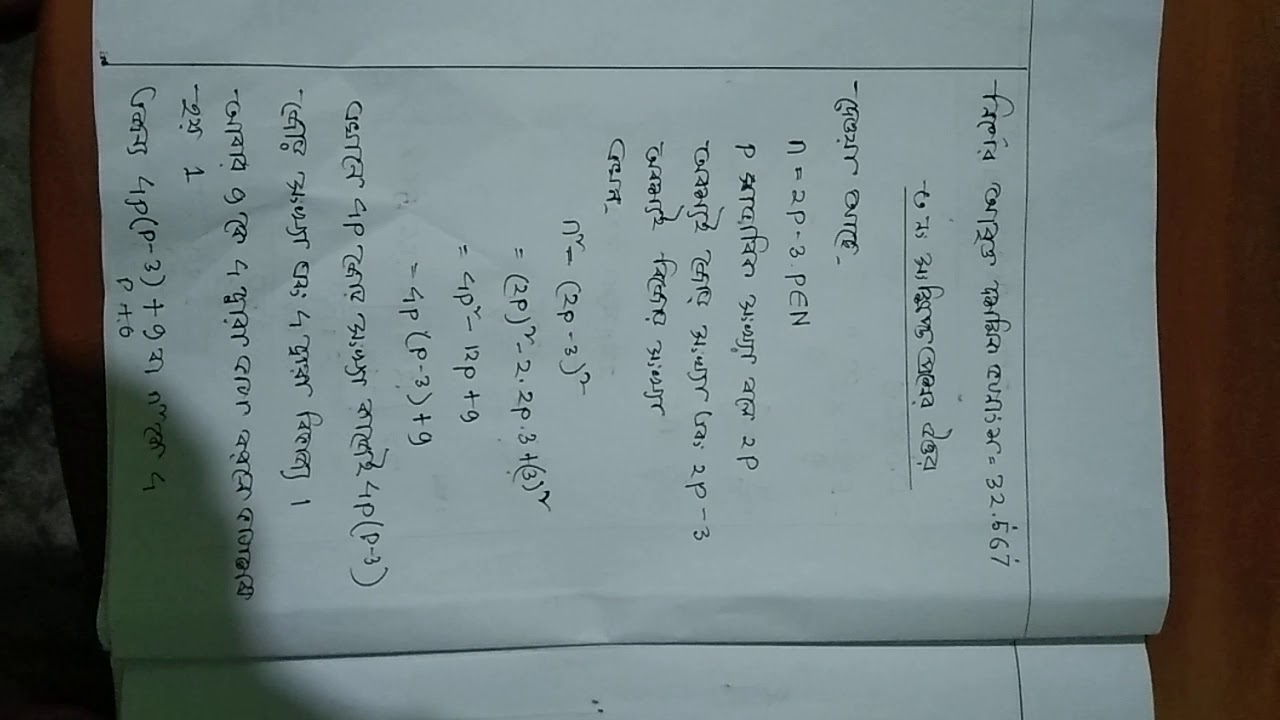 নির্ণেয় আবৃত্ত দশমিক ভগ্নাংশ = 32.5̇67̇
৩ নং সংক্ষিপ্ত প্রশ্নের উত্তর
দেওয়া আছে -
n = 2p - 3. p∈N
p স্বাভাবিক সংখ্যা বলে 2p
অবশ্যই জোড় সংখ্যা এবং 2p - 3
অবশ্যই বিজোড় সংখ্যা
এখন -
n² = (2p - 3)²
= (2p)² - 2. 2p. 3 + (3)²
= 4p² - 12p + 9
= 4p (p - 3) + 9
এখানে 4p জোড় সংখ্যা কাজেই 4p(p-3)
জোড় সংখ্যা এবং 4 দ্বারা বিভাজ্য।
আবার 9 কে 4 দ্বারা ভাগ করলে ভাগশেষ
হয় 1
4p(p-3) + 9 বা n² কে 4
p + 6